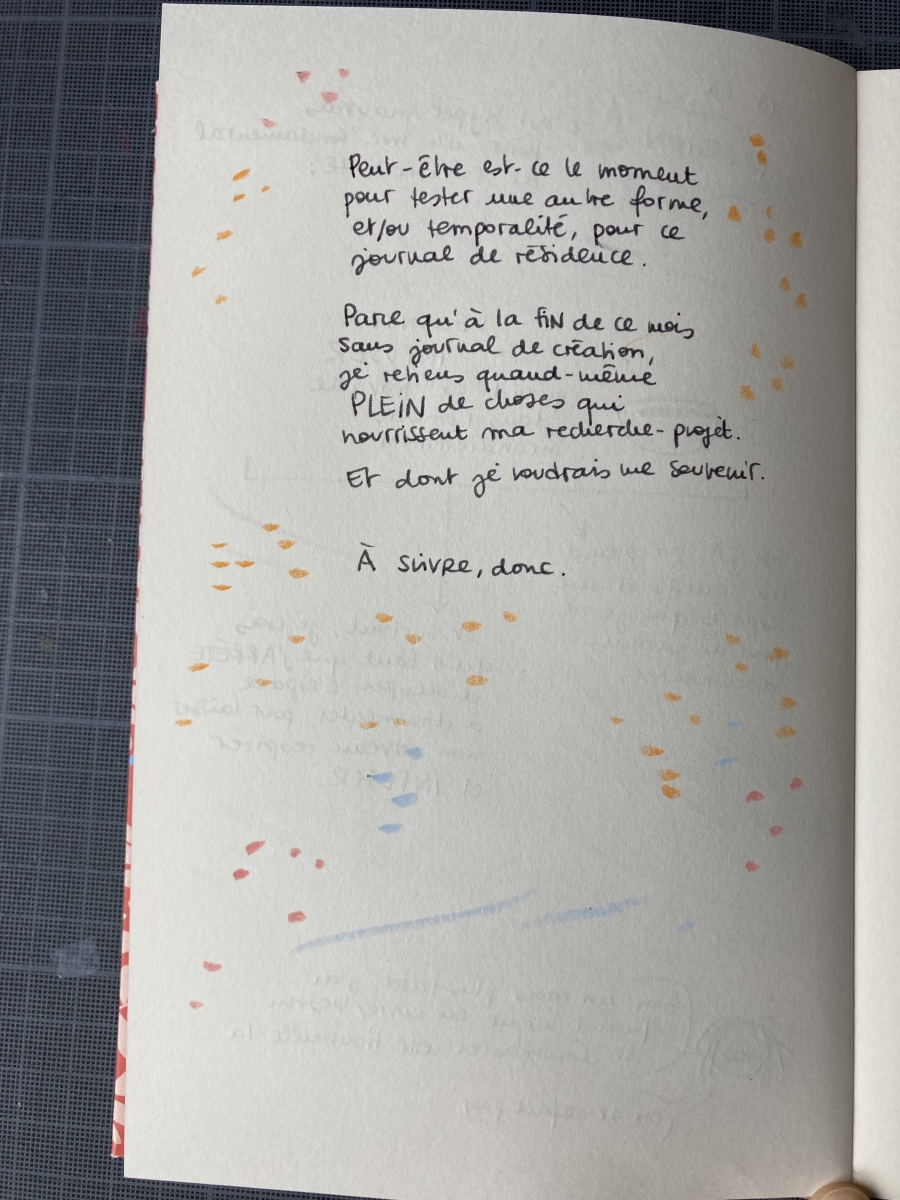 Peut-être est-ce le moment
pour tester une autre forme,
et/ou temporalité, pour ce
journal de résidence.
Parce qu'à la fiN de ce mois
sans journal de création,
je retiens quand-même
PLEiN de choses qui
nourrissent ma recherche-projet.
Et dont je voudrais me souvenir.
À suivre, donc.